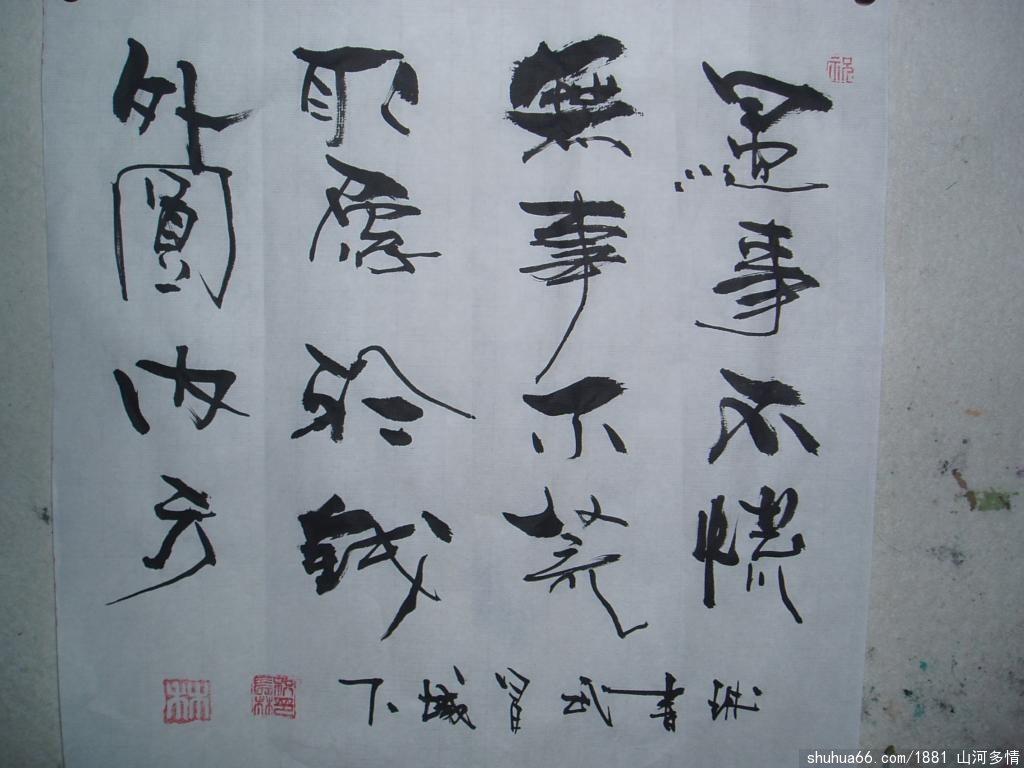 遇事不慌
無事不荒
取象於錢
外圓内方
書
下
shuhua66.com/1881 山河多情